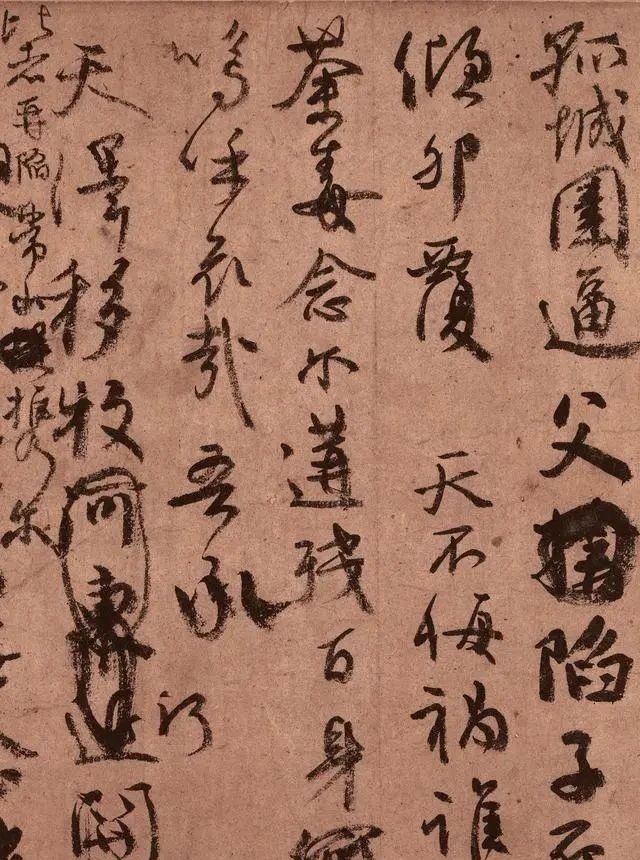 孤城圍逼父陷子
傾卵覆 天不悔禍誰
荼毒念尒遘殘百身何
嗚呼哀哉吾承
天澤移牧河東近關
比者再陷常山攜尒